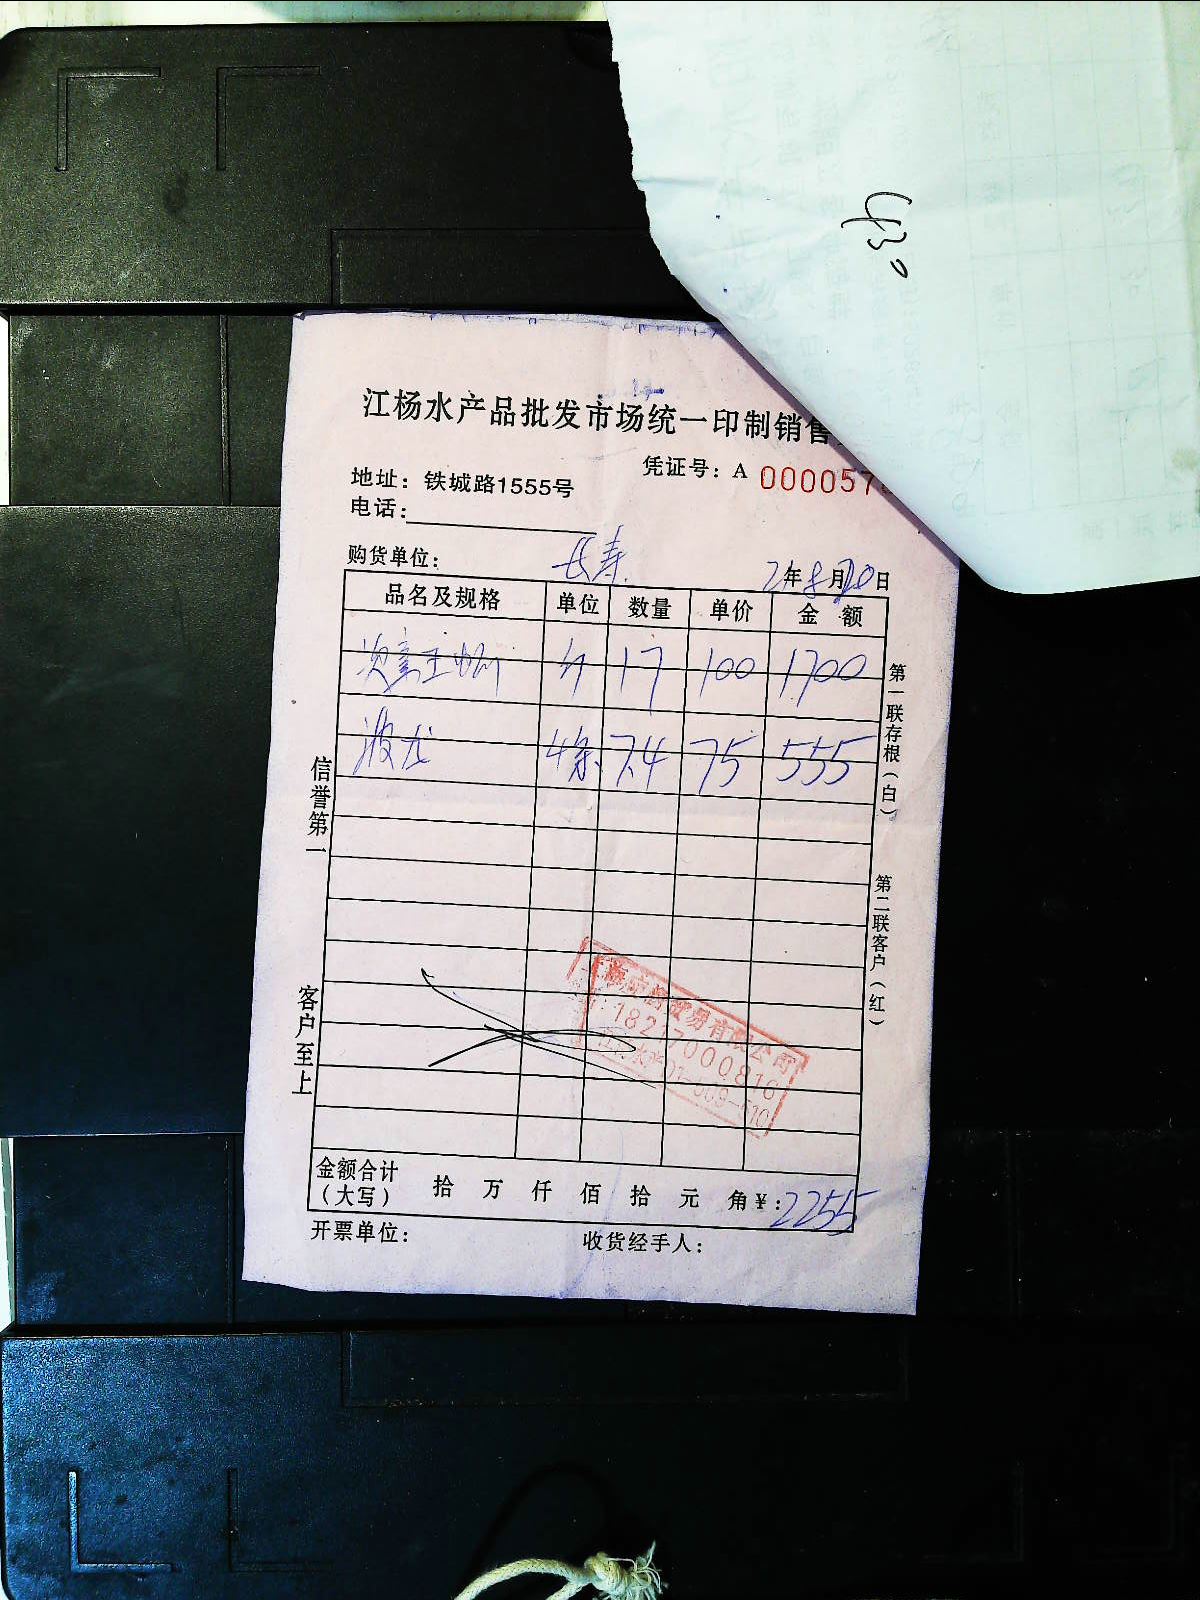 430
江杨水产品批发市场统一印制销售
凭证号：A 000057
地址：铁城路1555号
电话：
购货单位： 长寿 2年8月20日
品名及规格 单位 数量 单价 金 额
17 100 1700
波龙 4条 7.4 75 555
信誉第一
客户至上
第一联存根（白）
第二联客户（红）
贸易有限公司
18217000816
金额合计（大写） 拾 万 仟 佰 拾 元 角 ¥：2255
开票单位： 收货经手人：